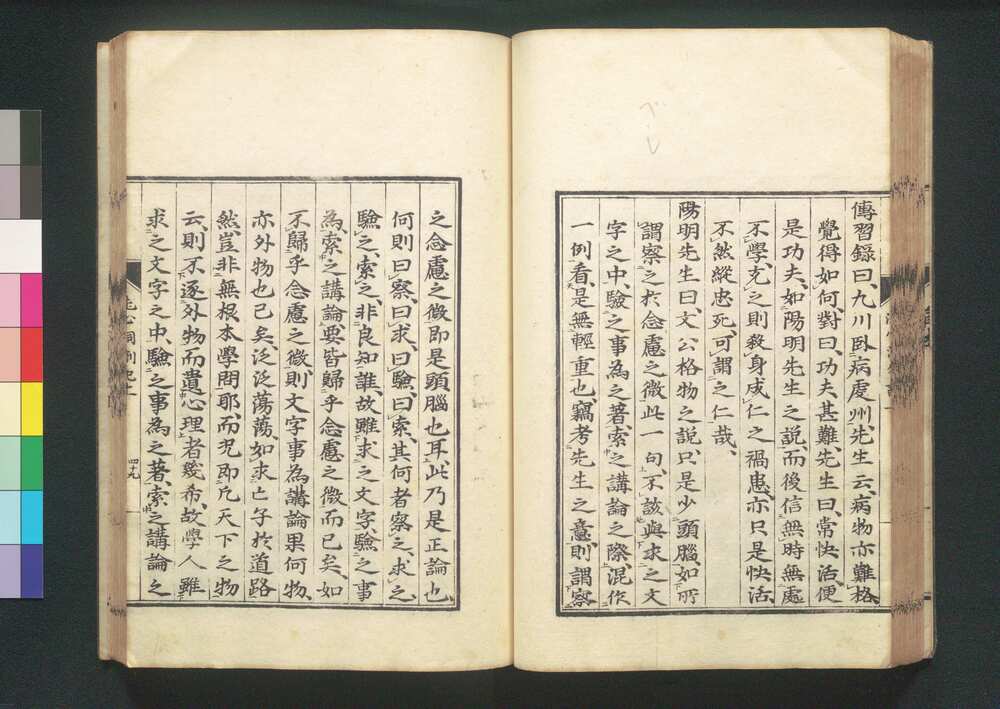 傳習錄曰、九川臥病虔州、先生云、病物亦難格、
覺得如何、對曰、功夫甚難、先生曰、常快活便
是功夫、如陽明先生之說、而後信無時無處
不學、尤之則殺身成仁之禍患、亦只是快活、
不然縱忠死、可謂之仁哉、
陽明先生曰、文公格物之說、只是少頭腦、如所
謂察之於念慮之微、此一句、不該與求之文
字之中、驗之事為之著、索之講論之際、混作
一例看、是無輕重也、竊考先生之意、則謂察
之念慮之微、即是頭腦也耳、此乃是正論也、
何則曰察、曰求、曰驗、曰索、其何者察之、求之、
驗之、索之、非良知誰、故雖求之文字、驗之事
為、索之講論、要皆歸乎念慮之微而已矣、如
不歸乎念慮之微、則文字事為講論果何物、
亦外物也已矣、泛泛蕩蕩、如求亡子於道路
然、豈非無根本學問耶、而況即凡天下之物
云、則不逐外物而遺心理者幾希、故學人雖
求之文字之中、驗之事為之著、索之講論之
四十九